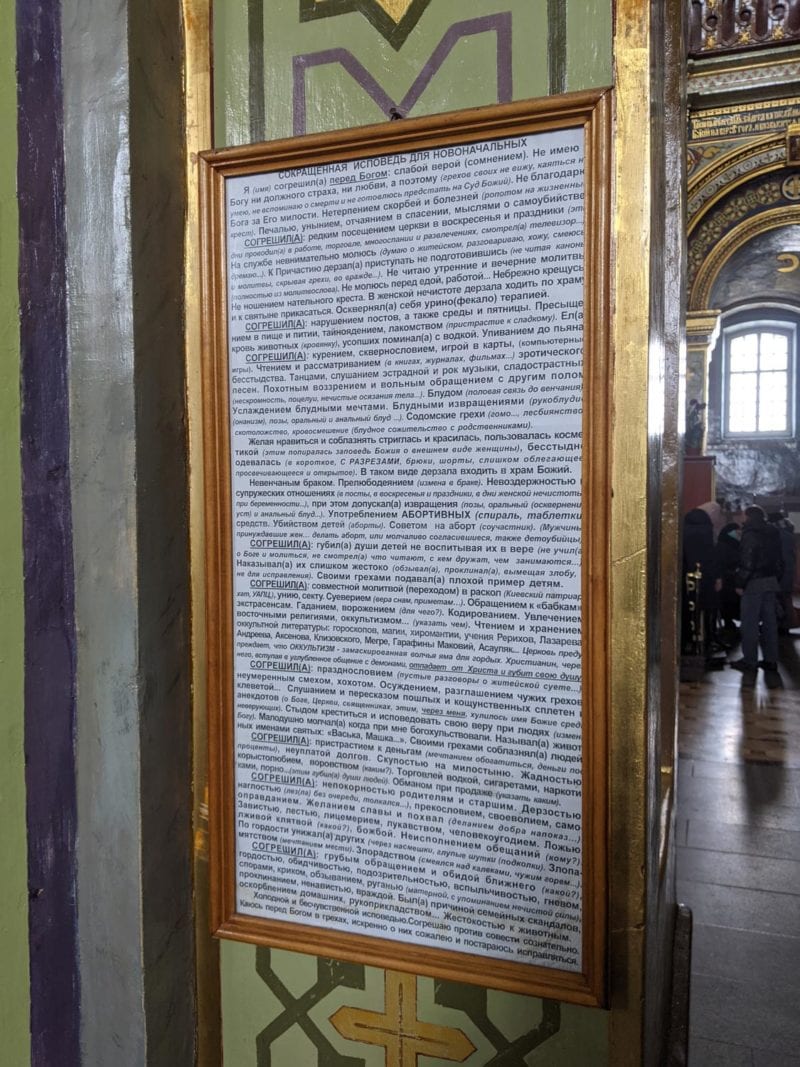 СОКРАЩЕННАЯ ИСПОВЕДЬ ДЛЯ НОВОНАЧАЛЬНЫХ
Я (имя) согрешил(а) перед Богом: слабой верой (сомнением). Не имею к
Богу ни должного страха, ни любви, а поэтому (грехов своих не вижу, каяться не
умею, не вспоминаю о смерти и не готовлюсь предстать на Суд Божий). Не благодарю
Бога за Его милости. Нетерпением скорбей и болезней (ропотом на жизненный
крест). Печалью, унынием, отчаянием в спасении, мыслями о самоубийстве
СОГРЕШИЛ(А): редким посещением церкви в воскресенья и праздники (эти
дни проводил(а) в работе, торговле, многоспании и развлечениях, смотрел(а) телевизор...
На службе невнимательно молюсь (думаю о житейском, разговариваю, хожу, смеюсь
дремаю...). К Причастию дерзал(а) приступать не подготовившись (не читая каноны
и молитвы, скрывая грехи, во вражде...). Не читаю утренние и вечерние молитвы
(полностью из молитвослова). Не молюсь перед едой, работой... Небрежно крещусь
Не ношением нательного креста. В женской нечистоте дерзала ходить по храму
и к святыне прикасаться. Осквернял(а) себя урино(фекало) терапией.
СОГРЕШИЛ(А): нарушением постов, а также среды и пятницы. Пресыще-
нием в пище и питии, тайноядением, лакомством (пристрастие к сладкому). Ел(а)
кровь животных (кровянку), усопших поминал(а) с водкой. Упиванием до пьяна
СОГРЕШИЛ(А): курением, сквернословием, игрой в карты, (компьютерные
игры). Чтением и рассматриванием (в книгах, журналах, фильмах...) эротического
бесстыдства. Танцами, слушанием эстрадной и рок музыки, сладострастных
песен. Похотным воззрением и вольным обращением с другим полом
(нескромность, поцелуи, нечистые осязания тела...). Блудом (половая связь до венчания)
Услаждением блудными мечтами. Блудными извращениями (рукоблудие
(онанизм), позы, оральный и анальный блуд ...). Содомские грехи (гомо..., лесбиянство
скотоложство, кровосмешение (блудное сожительство с родственниками).
Желая нравиться и соблазнять стриглась и красилась, пользовалась косме-
тикой (этим попиралась заповедь Божия о внешнем виде женщины), бесстыдно
одевалась (в короткое, С РАЗРЕЗАМИ, брюки, шорты, слишком облегающее
просвечивающееся и открытое). В таком виде дерзала входить в храм Божий.
Невенчанным браком. Прелюбодеянием (измена в браке). Невоздержностью в
супружеских отношениях (в посты, в воскресенья и праздники, в дни женской нечистоты
при беременности...), при этом допускал(а) извращения (позы, оральный (осквернение
уст) и анальный блуд...). Употреблением АБОРТИВНЫХ (спираль, таблетки
средств. Убийством детей (аборты). Советом на аборт (соучастник). (Мужчины
принуждавшие жен... делать аборт, или молчаливо согласившиеся, также детоубийцы,
СОГРЕШИЛ(А): губил(а) души детей не воспитывая их в вере (не учил(а)
о Боге и молиться, не смотрел(а) что читают, с кем дружат, чем занимаются...)
Наказывал(а) их слишком жестоко (обзывал(а), проклинал(а), вымещая злобу,
не для исправления). Своими грехами подавал(а) плохой пример детям.
СОГРЕШИЛ(А): совместной молитвой (переходом) в раскол (Киевский патриар-
хат, УАПЦ), унию, секту. Суеверием (вера снам, приметам...). Обращением к «бабкам»
экстрасенсам. Гаданием, ворожением (для чего?). Кодированием. Увлечением
восточными религиями, оккультизмом... (указать чем). Чтением и хранением
оккультной литературы: гороскопов, магии, хиромантии, учения Рерихов, Лазарева
Андреева, Аксенова, Клизовского, Мегре, Гарафины Маковий, Асауляк... Церковь преду-
преждает, что ОККУЛЬТИЗМ - замаскированная волчья яма для гордых. Христианин, через
него, вступая в углубленное общение с демонами, отпадает от Христа и губит свою душу
СОГРЕШИЛ(А): празднословием (пустые разговоры о житейской суете...)
неумеренным смехом, хохотом. Осуждением, разглашением чужих грехов
клеветой... Слушанием и пересказом пошлых и кощунственных сплетен и
анекдотов (о Боге, Церкви, священниках, этим, через меня, хулилось имя Божие среди
неверующих). Стыдом креститься и исповедовать свою веру при людях (измена
Богу). Малодушно молчал(а) когда при мне богохульствовали. Называл(а) живот-
ных именами святых: «Васька, Машка...». Своими грехами соблазнял(а) людей
СОГРЕШИЛ(А): пристрастием к деньгам (мечтанием обогатиться, деньги под
проценты), неуплатой долгов. Скупостью на милостыню. Жадностью
корыстолюбием, воровством (каким?). Торговлей водкой, сигаретами, наркоти-
ками, порно...(этим губил(а) души людей). Обманом при продаже (указать каким).
СОГРЕШИЛ(А): непокорностью родителям и старшим. Дерзостью
наглостью (лез(ла) без очереди, толкался...), прекословием, своеволием, само-
оправданием. Желанием славы и похвал (деланием добра напоказ...)
Завистью, лестью, лицемерием, лукавством, человекоугодием. Ложью
лживой клятвой (какой?), божбой. Неисполнением обещаний (кому?)
По гордости унижал(а) других (через насмешки, глупые шутки (подколки). Злопа-
мятством (мечтанием мести). Злорадством (смеялся над калеками, чужим горем...)
СОГРЕШИЛ(А): грубым обращением и обидой ближнего (какой?),
гордостью, обидчивостью, подозрительностью, вспыльчивостью, гневом,
спорами, криком, обзыванием, руганью (матерной, с упоминанием нечистой силы),
проклинанием, ненавистью, враждой. Был(а) причиной семейных скандалов,
оскорблением домашних, рукоприкладством... Жестокостью к животным.
Холодной и бесчувственной исповедью.Согрешаю против совести сознательно.
Каюсь перед Богом в грехах, искренно о них сожалею и постараюсь исправляться.